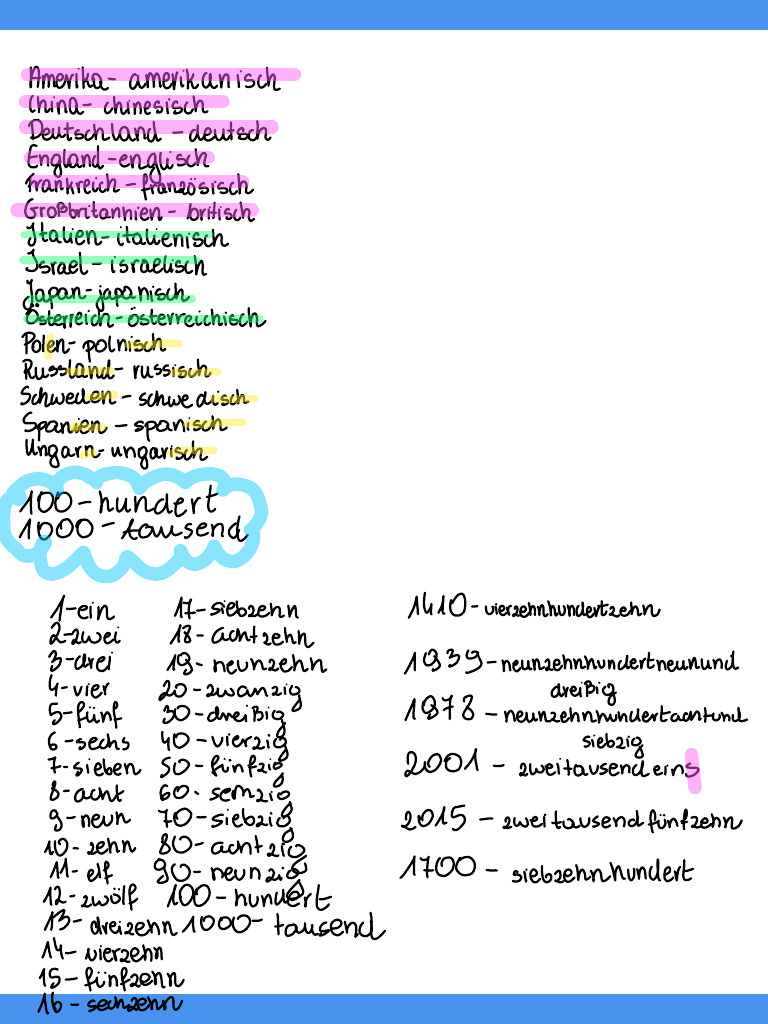 Amerika- amerikanisch
China- chinesisch
Deutschland - deutsch
England-englisch
Frankreich - französisch
Großbritannien - britisch
Italien-italienisch
Israel - israelisch
Japan-japanisch
Österreich-österreichisch
Polen- polnisch
Russland- russisch
Schweden - schwedisch
Spanien - spanisch
Ungarn- ungarisch
100-hundert
1000-tausend
1-ein
2-zwei
3-drei
4-vier
5-fünf
6-sechs
7-sieben
8-acht
9-neun
10-zehn
11-elf
12-zwölf
13-dreizehn
14-vierzehn
15-fünfzehn
16-sechzehn
17-siebzehn
18-achtzehn
19-neunzehn
20-zwanzig
30-dreißig
40-vierzig
50-fünfzig
60-
70-siebzig
80-achtzig
90-neunzig
100-hundert
1000-tausend
1410-vierzehnhundertzehn
1939-neunzehnhundertneunund
dreißig
1978-neunzehnhundertachtund
siebzig
2001 - zweitausendeins
2015 - zweitausendfünfzehn
1700 - siebzehnhundert